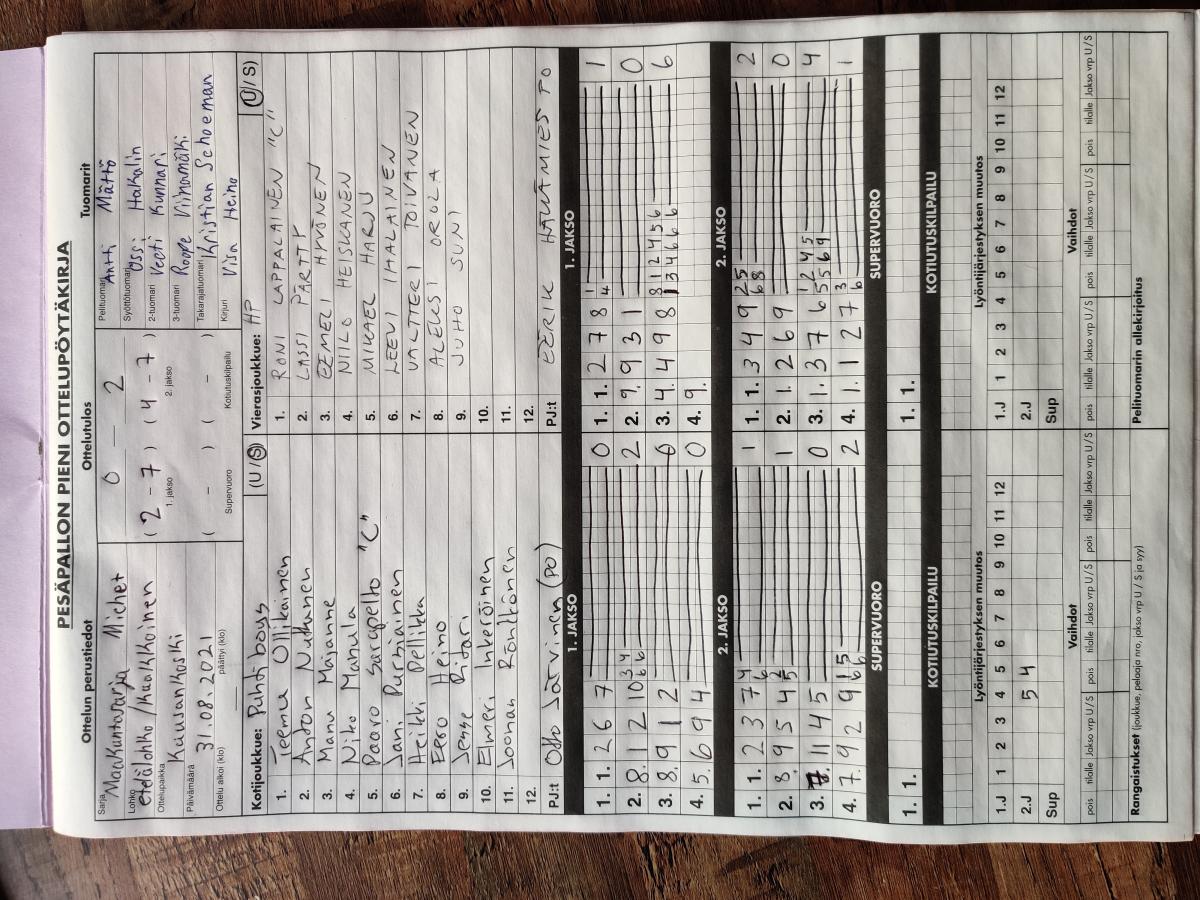 PESÄPALLON PIENI OTTELUPÖYTÄKIRJA
Ottelun perustiedot
Sarja
Maakuntasarja Miehet
Lohko
etelälohko
Ottelupaikka
Kausankoski
Päivämäärä
31.08.2021
Ottelu alkoi (klo) päättyi (klo)
Ottelutulos
0 — 2
(2 - 7) (4 - 7)
1. jakso 2. jakso
( - ) ( - )
Supervuoro Kotiutuskilpailu
Tuomarit
Pelituomari Antti Mättö
Syöttötuomari Ossi Hakalin
2-tuomari Veeti Kunnari
3-tuomari Roope Viinamäki
Takarajatuomari Kristian Schoeman
Kirjuri Visa Heino
Kotijoukkue: Puhti boys (U/S)
1. Teemu Ullikainen
2. Anton Nuthanen
3. Manu Majanne
4. Niko Manula
5. Paavo Sarapelto "C"
6. Jani Purhiainen
7. Heikki Pellikka
8. Eero Heino
9. Jesse Ritari
10. Elmeri Inkeröinen
11. Joonan Rönttönen
12.
PJ:t Otto Järvinen (PO)
Vierasjoukkue: HP (U/S)
1. RONI LAPPALAINEN "C"
2. LASSI PÄRTTY
3. EEMELI HYVÖNEN
4. NIILO HEISKANEN
5. MIKAEL HARJU
6. LEEVI IHALAINEN
7. VALTTERI TOIVANEN
8. ALEKSI OROLA
9. JUHO SUNI
10.
11.
12.
PJ:t EERIK HAUÄMIES PO
1. JAKSO
1. 1. 2 6 7 0
2. 8. 1 2 10 3 4 6 6 2
3. 8. 9 1 2 0
4. 5. 6 9 4 0
1. JAKSO
1. 1. 2 7 8 1 4 1
2. 9. 9 3 1 0
3. 4. 4 9 8 8 1 2 4 5 6 1 3 4 6 6 6 6
4. 9.
2. JAKSO
1. 1. 2 3 7 4 6 1
2. 8. 9 5 4 2 5 1
3. 7. 11 4 5 0
4. 7. 9 2 9 1 5 6 5 2
2. JAKSO
1. 1. 3 4 9 2 5 6 8 2
2. 1. 2 6 9 0
3. 1. 3 7 6 1 2 4 5 5 5 6 9 4
4. 1. 1 2 7 3 6 1
SUPERVUORO
1. 1.
SUPERVUORO
1. 1.
KOTIUTUSKILPAILU
KOTIUTUSKILPAILU
Lyöntijärjestyksen muutos
1.J 1 2 3 4 5 6 7 8 9 10 11 12
2.J 5 4
Sup
Lyöntijärjestyksen muutos
1.J 1 2 3 4 5 6 7 8 9 10 11 12
2.J
Sup
Vaihdot
pois tilalle Jakso vrp U/S pois tilalle Jakso vrp U/S pois tilalle Jakso vrp U/S
Vaihdot
pois tilalle Jakso vrp U/S pois tilalle Jakso vrp U/S pois tilalle Jakso vrp U/S
Rangaistukset (joukkue, pelaaja nro, jakso vrp U / S ja syy)
Pelituomarin allekirjoitus